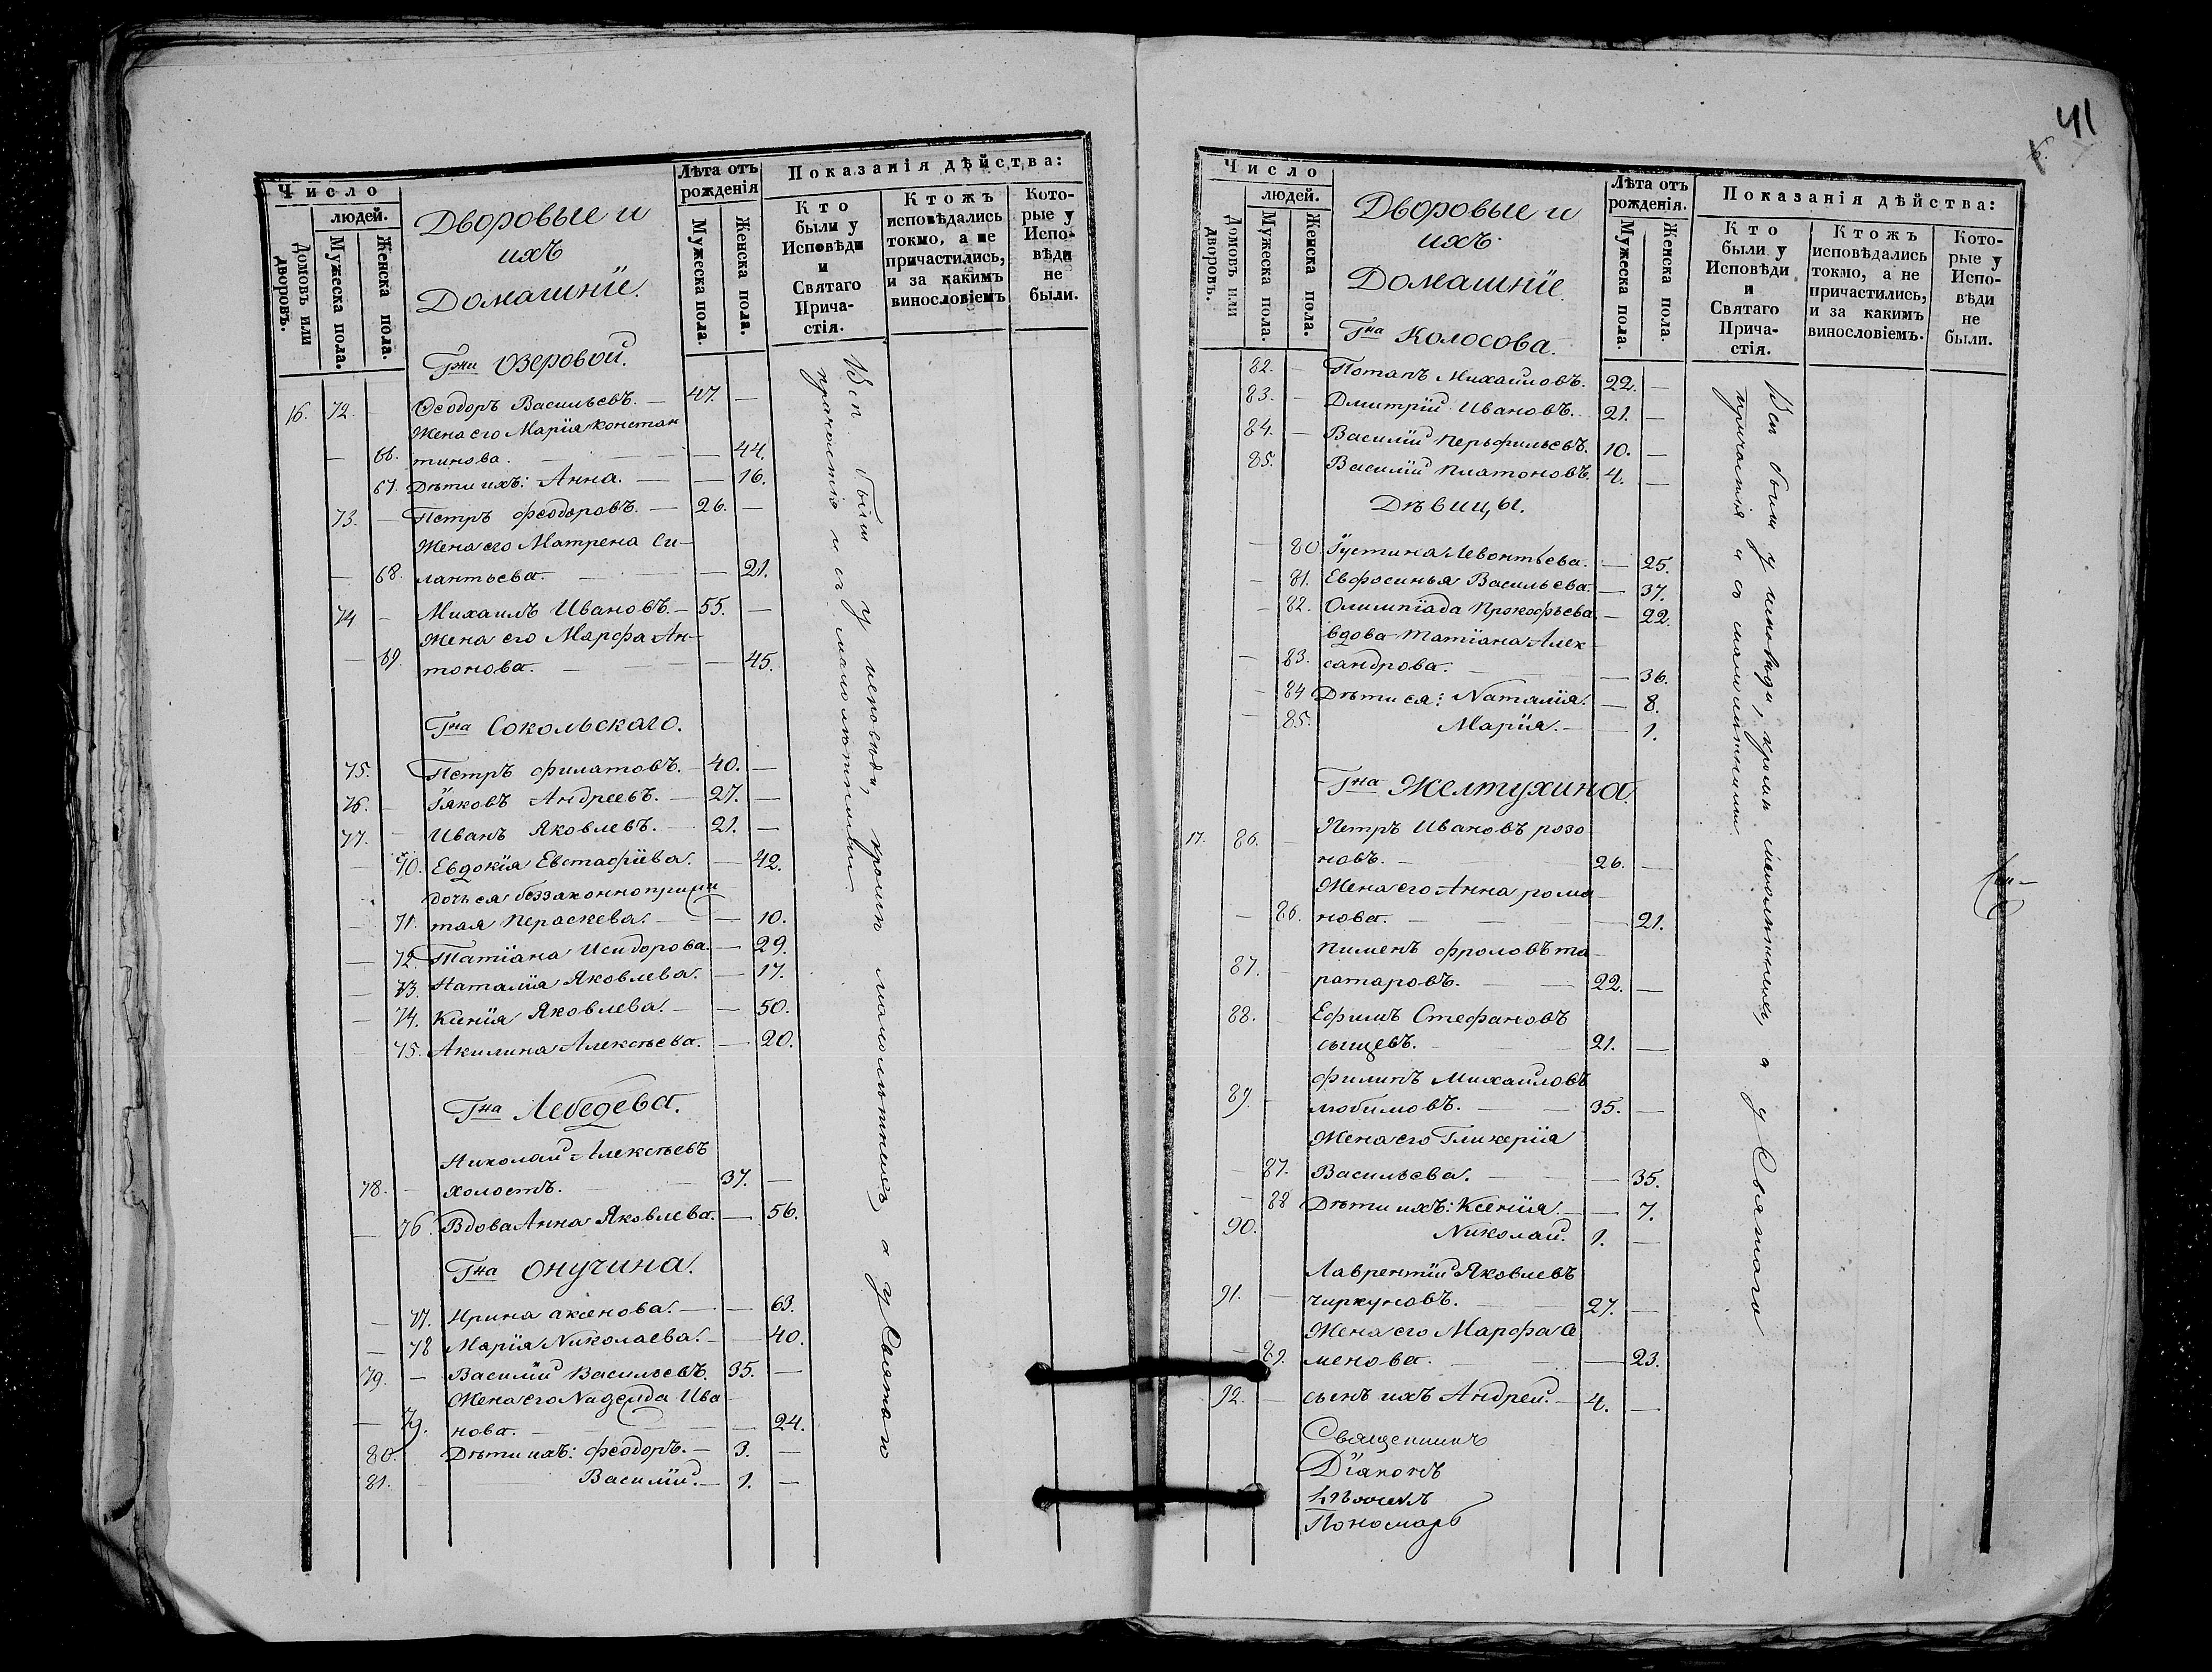 Число
людей.
Домовъ или дворовъ.
Мужеска пола.
Женска пола.
Дворовые и
ихъ
Домашнїе.
Лѣта отъ
рожденія
Мужеска пола.
Женска пола.
Показанія дѣйства:
Кто
были у
Исповѣди
и
Святаго
Прича-
стія.
Ктожъ
исповѣдались
токмо, а не
причастились,
и за какимъ
винословіемъ
Кото-
рые у
Испо-
вѣди
не
были.
Гжи Озеровой.
16. 72. – Ѳеодоръ Васильевъ. – 47. –
Жена его Марїя Констан
– 66. тинова. – – 44.
67. Дѣти ихъ: Анна. – – 16.
73. – Петръ Феодоровъ. – 26. –
Жена его Матрена Си-
– 68. лантьева. – – 21.
74 – Михаилъ Ивановъ. – 55. –
Жена его Марфа Ан-
– 69. тонова. – – 45.
Гна Сокольскаго.
75. Петръ Филатовъ. – 40. –
76. – Їяковъ Андреевъ. – 27. –
77. – Иванъ Яковлевъ. – 21. –
– 70. Евдокїя Евстафїева. – 42.
дочь ея беззаконноприжи
– 71. тая Пераскева. – – 10.
– 72. Татїана Исидорова. – 29.
– 73. Наталїя Яковлева. – 17.
– 74. Ксенїя Яковлева. – – 50.
– 75. Акилина Алексѣева. – 20.
Гна Лебедева.
Николай Алексѣевъ
78. – холостъ. – 37. –
– 76. Вдова Анна Яковлева. – 56.
Гна Онучина.
– 77. Ирина аксенова. – – 63.
– 78 Марїя Николаева. – – 40.
79. – Василїй Васильевъ. 35. –
Жена его Надежда Ива
– 79. нова. – – 24.
80. Дѣти ихъ: Феодоръ. – 3. –
81. – Василїй. – 1. –
Всѣ были у исповѣди, кромѣ малолѣтнихъ, а у Святаго
причастїя и съ малолѣтними
41
Число
людей.
Домовъ или дворовъ.
Мужеска пола.
Женска пола.
Дворовые и
ихъ
Домашнїе.
Лѣта отъ
рожденія.
Мужеска пола.
Женска пола.
Показанія дѣйства:
Кто
были у
Исповѣди
и
Святаго
Прича-
стія.
Ктожъ
исповѣдались
токмо, а не
причастились,
и за какимъ
винословіемъ.
Кото-
рые у
Испо-
вѣди
не
были.
Гна Колосова.
82. – Потапъ Михаиловъ. 22. –
83. – Дмитрїй Ивановъ. 21. –
84. – Василїй Перьфильевъ. 10. –
85. Василїй Платоновъ. 4. –
Дѣвицы.
– 80. Їустина Левонтьева. – 25.
– 81. Евфросинья Васильева. – 37.
– 82. Олимпїада Прокофьева – 22.
вдова Татїана Алек
– 83. сандрова. – – 36.
– 84 Дѣти ея: Наталїя. – 8.
– 85. Марїя. – – 1.
Гна Желтухина.
17. 86. – Петръ Ивановъ розо
новъ. – 26. –
Жена его Анна рома
– 86. нова. – – 21.
Пименъ Фроловъ та
87. – ратаровъ. – 22. –
88. – Ефимъ Стефановъ
сыщевъ. – 21. –
Филипъ Михаиловъ
89. – любимовъ. – 35. –
Жена его Гликерїя
– 87. Васильева. – – 35.
– 88 Дѣти ихъ: Ксенїя. – – 7.
90. Николай. 1. –
Лаврентїй Яковлевъ
91. – чиркуновъ. – 27. –
Жена его Марфа Се
– 89. менова. – – 23.
92. – сынъ ихъ Андрей. – 4. –
Священникъ
Дїаконъ
Пономарь
Всѣ были у исповѣди, кромѣ малолѣтнихъ, а у Святаго
причастїя и съ малолѣтними.